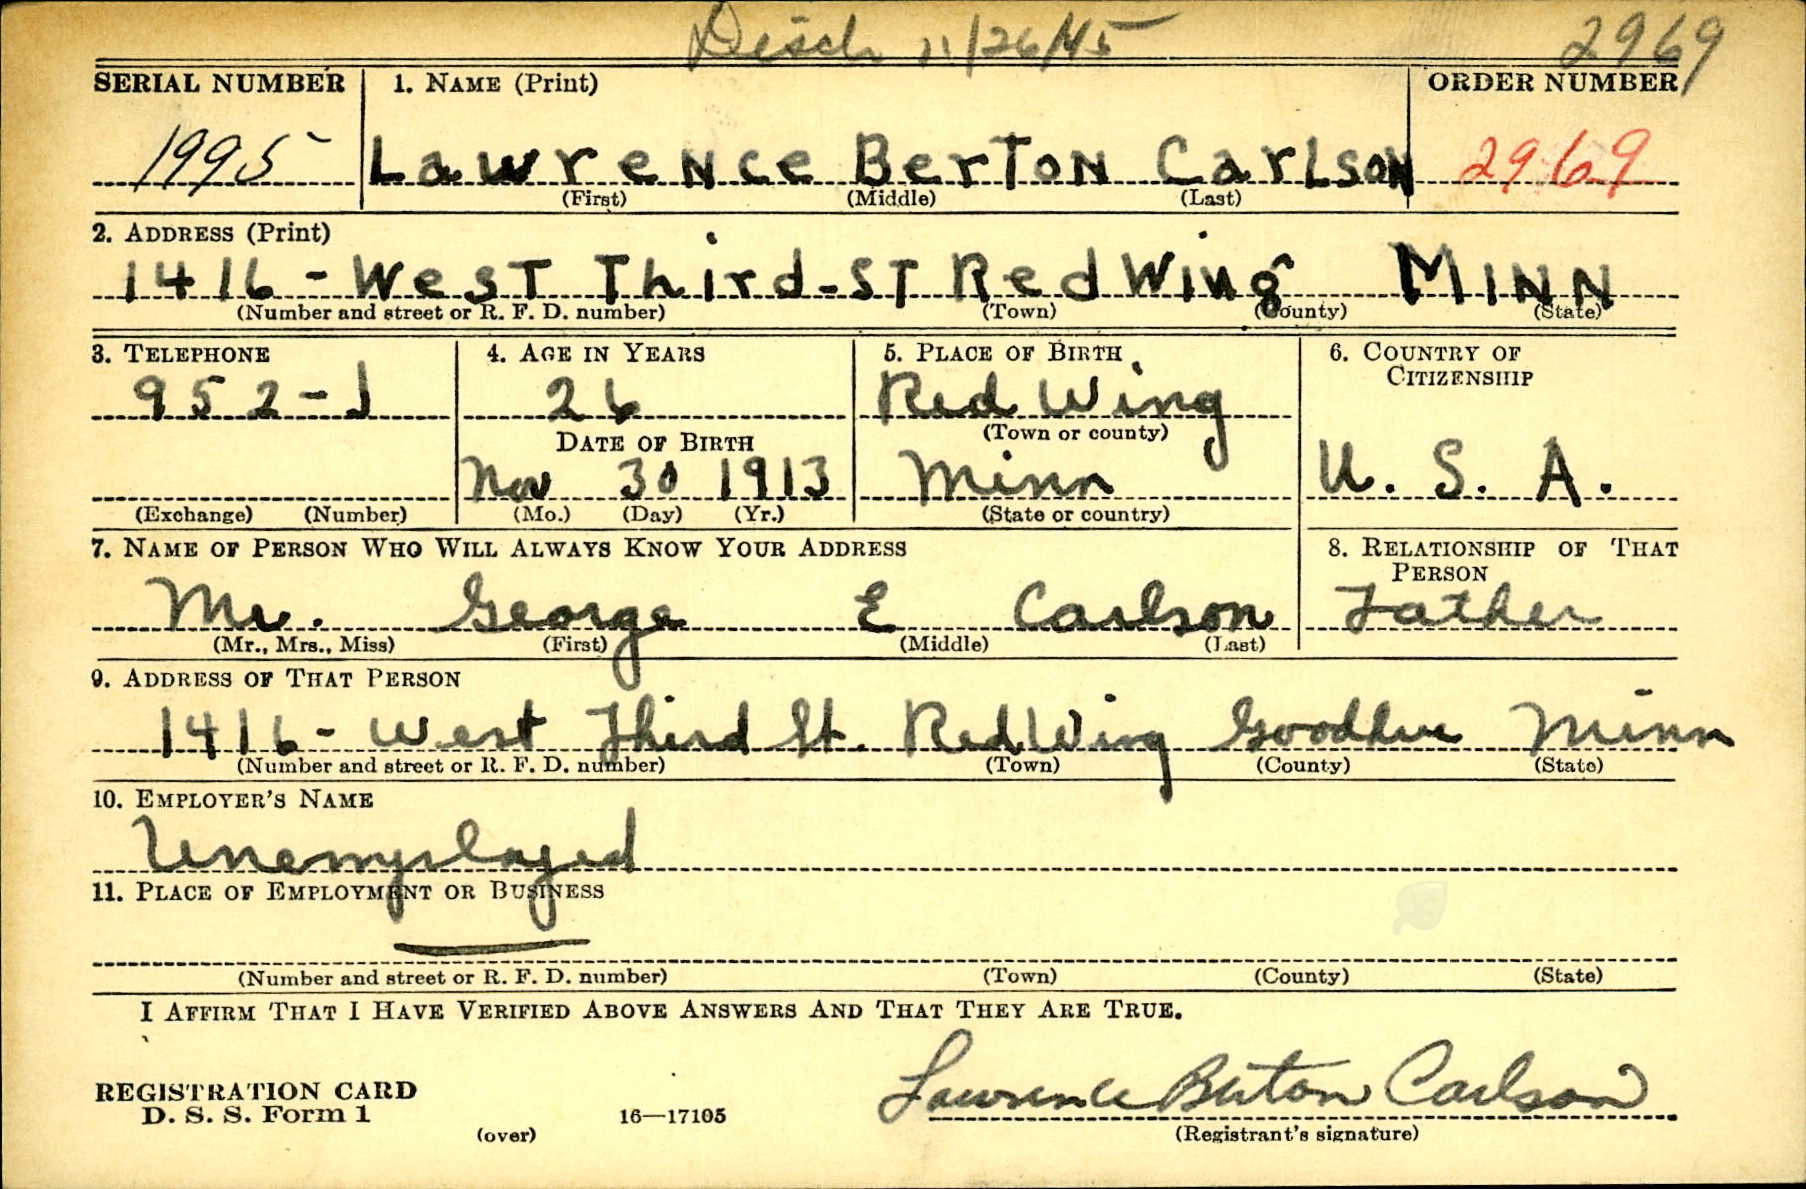 Disch 11/26/45 2969
SERIAL NUMBER 1. NAME (Print) ORDER NUMBER
1995 Lawrence Berton Carlson 2969
(First) (Middle) (Last)
2. ADDRESS (Print)
1416 - West Third - ST Red Wing MINN
(Number and street or R. F. D. number) (Town) (County) (State)
3. TELEPHONE 4. AGE IN YEARS 5. PLACE OF BIRTH 6. COUNTRY OF
CITIZENSHIP
952-J 26 Red Wing
DATE OF BIRTH (Town or county)
Nov 30 1913 Minn U. S. A.
(Exchange) (Number) (Mo.) (Day) (Yr.) (State or country)
7. NAME OF PERSON WHO WILL ALWAYS KNOW YOUR ADDRESS 8. RELATIONSHIP OF THAT
PERSON
Mr. George E Carlson Father
(Mr., Mrs., Miss) (First) (Middle) (Last)
9. ADDRESS OF THAT PERSON
1416 - West Third St. Red Wing Goodhue Minn
(Number and street or R. F. D. number) (Town) (County) (State)
10. EMPLOYER'S NAME
Unemployed
11. PLACE OF EMPLOYMENT OR BUSINESS
(Number and street or R. F. D. number) (Town) (County) (State)
I AFFIRM THAT I HAVE VERIFIED ABOVE ANSWERS AND THAT THEY ARE TRUE.
REGISTRATION CARD Lawrence Berton Carlson
D. S. S. Form 1 16—17105
(over) (Registrant's signature)